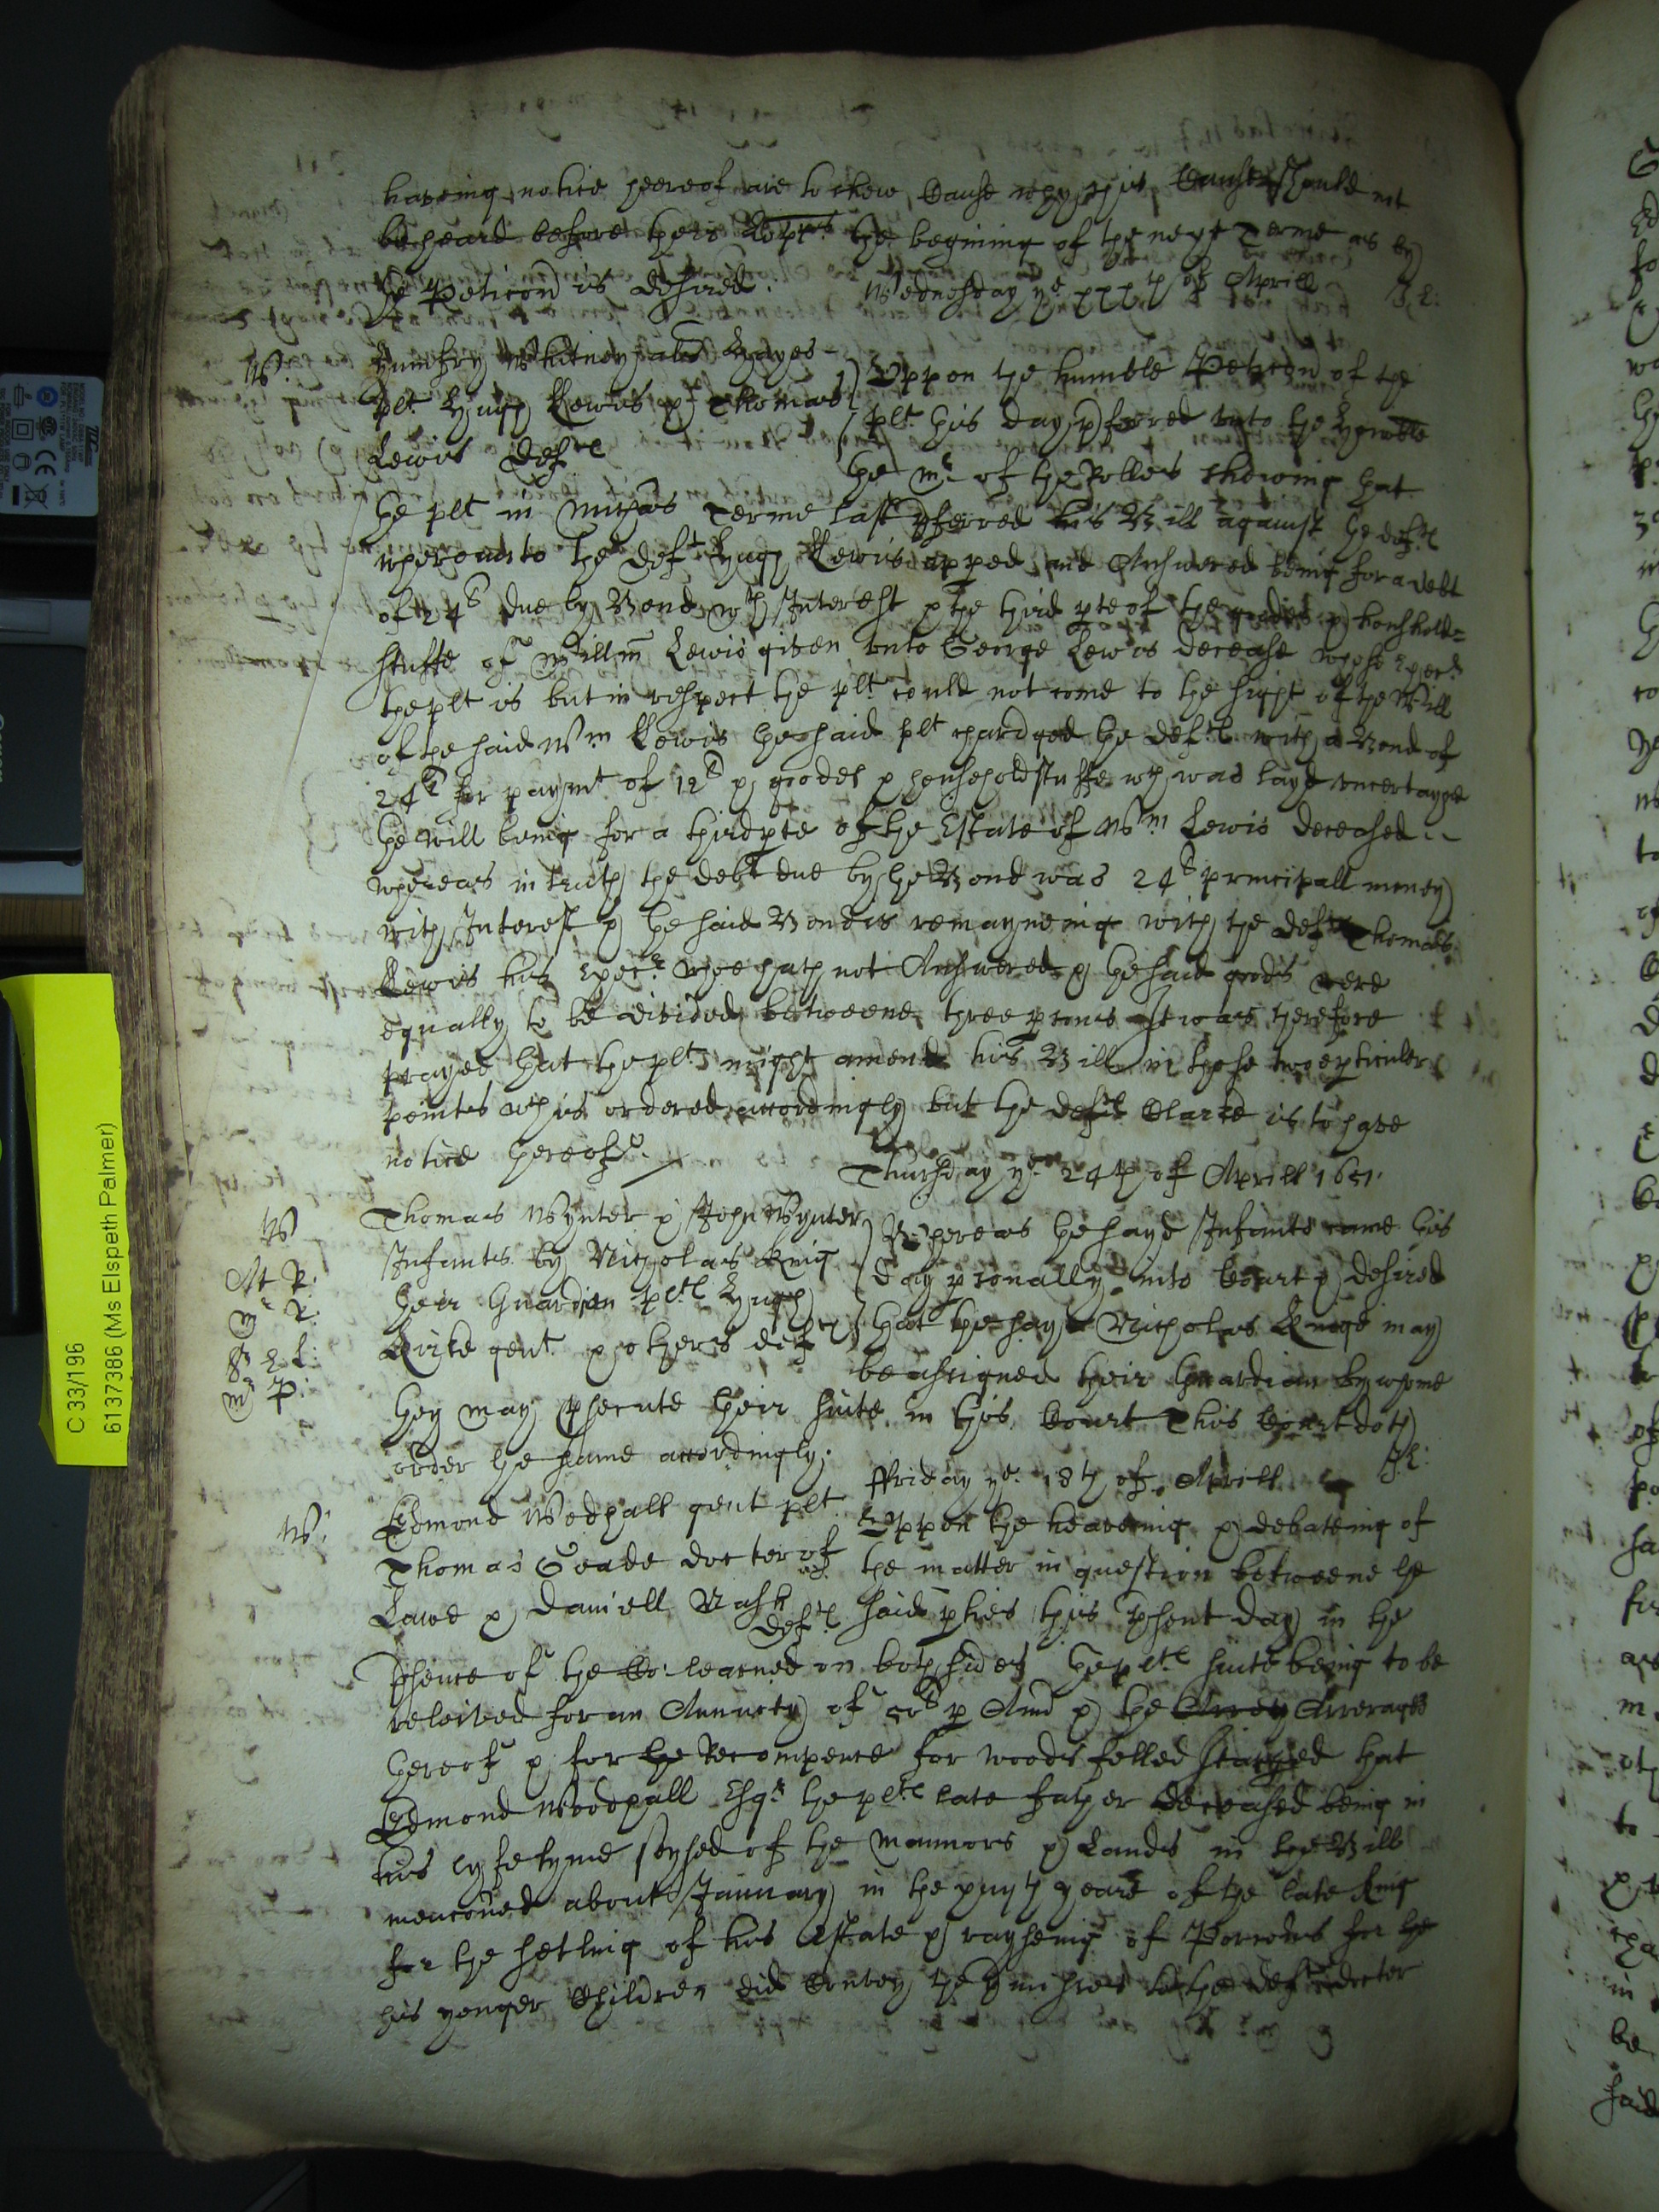 haveing notice hereof are to shew Cause why this Cause should not
be heard before their Lopps the begining of the next Terme as by
the Peticon is desired.
Wednesday ye xxxth of Aprill J: L:
W. Humfry Whitney als Hayes
plt Hugh Lewis & Thomas
Lewis Defts
Uppon the humble Peticon of the
plt this day pferred unto the Honoble
the Mr of the Rolles shewing that
the plt in Michas Terme last pferred his Bill against the defts
whereunto the deft Hugh Lewis apped and Answered being for a debt
of 24l due by Bond wth Interest & the third pte of the goodes & houshold=
stuffe of Willm Lewis given unto George Lewis decease whose Execr
the plt is but in respect the plt could not come to the sight of the Will
of the said Wm Lewis the said plt chardged the defts with a Bond of
24l for paymt of 12l & goodes & householdstuffe wch was layd uncertayne
the will being for a third pte of the Estate of Wm Lewis deceased
whereas in truth the debt due by the Bond was 24l principall money
with Interest & the said Bond is remayneing with the deft Thomas
Lewis his Execr whoe hath not Answered & the said goods were
equally to be divided betweene three psons It was therefore
prayed that the plt might amend his Bill in those twoe pticuler
points wch is ordered accordingly but the defts Clarke is to have
notice hereof.
Thursday ye 24th of Aprill 1651.
W
At R:
Mr R:
Sr E L:
Mr P:
Thomas Wynter & John Wynter
Infants by Nicholas King
their Guardian plts Hugh
Kirke gent & others defts
Whereas the sayd Infants came this
day psonally into Court & desired
that the sayd Nicholas Kinge may
be assigned their Guardian by whome
they may psecute their suite in this Court This Court doth
order the same accordingly;
J: L:
ffriday ye 18th of Aprill
W:
Edmond Wodhall gent plt
Thomas Goade docter of
Lawe & Daniell Nash
defts
Uppon the heareing & debateing of
the matter in question betweene the
said pties this psent day in the
psence of the Co: learned on both sides the plts suite being to be
releived for an Annuety of 50l p Ann & the Arrey Arerages
thereof & for the Recompence for woods felled that
Edmond Woodhall Esqr the plts late father deceased being in
his lyfetyme seysed of the mannors & Lands in the Bill
menconed about January in the yeare of the late King
for the setling of his estate & rayseing of Porcions for the
his yonger Children did Convey the pmisses to the deft docter
C 33/196
6137386 (Ms Elspeth Palmer)